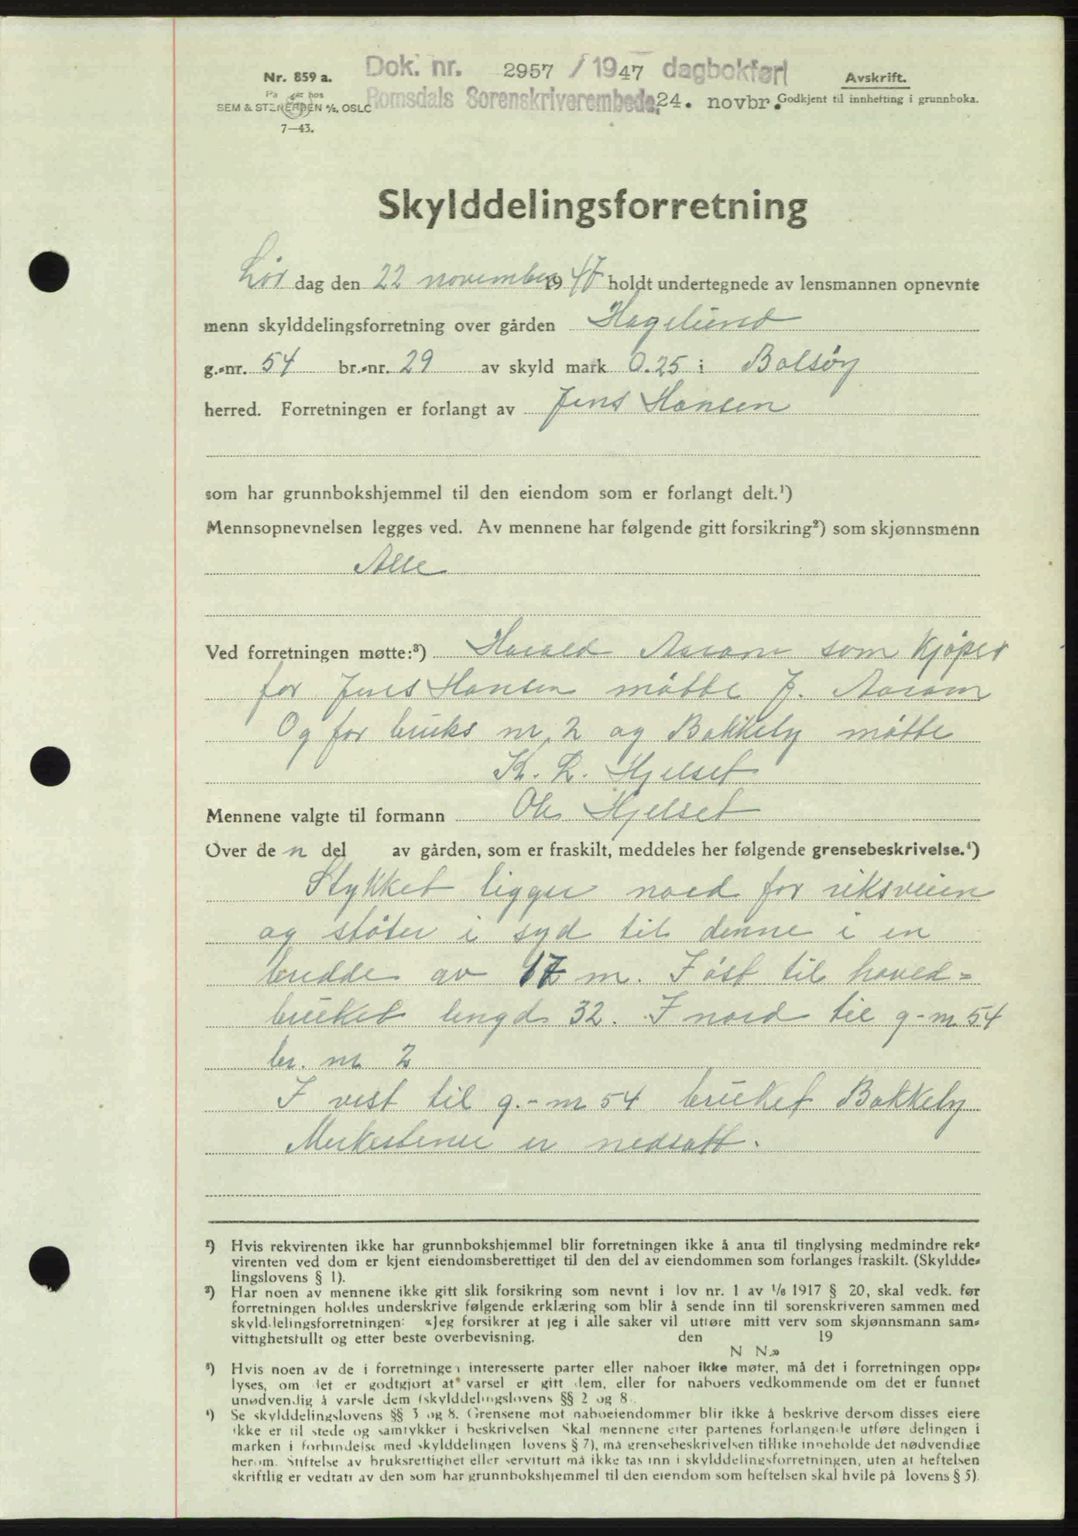 Nr. 859 a.
Dok. nr. 2957 / 1947 dagbokført
Avskrift.
SEM & STENERSEN A/S, OSLO
Romsdals Sorenskriverembede, 24. novbr.
Godkjent til innhefting i grunnboka.
7—43.
Skylddelingsforretning
Lør dag den 22 november 1947 holdt undertegnede av lensmannen opnevnte
menn skylddelingsforretning over gården Hagelund
g.-nr. 54 br.-nr. 29 av skyld mark 0.25 i Bolsøy
herred. Forretningen er forlangt av Jens Hansen
som har grunnbokshjemmel til den eiendom som er forlangt delt.¹)
Mennsopnevnelsen legges ved. Av mennene har følgende gitt forsikring²) som skjønnsmenn
Alle
Ved forretningen møtte:³) Harald Aaram som kjøper
for Jens Hansen møtte J. Aaram
Og for bruks nr 2 og Bakkeby møtte
K. L. Hjelset
Mennene valgte til formann Ole Hjelset
Over de n del av gården, som er fraskilt, meddeles her følgende grensebeskrivelse.⁴)
Stykket ligger nord for riksveien
og støter i syd til denne i en
bredde av 17 m. I øst til hoved-
bruket lengde 32. I nord til g-nr 54
br. nr 2
I vest til g.-nr 54 bruket Bakkeby
Merkestener er nedsatt.
¹) Hvis rekvirenten ikke har grunnbokshjemmel blir forretningen ikke å anta til tinglysing medmindre rek-
virenten ved dom er kjent eiendomsberettiget til den del av eiendommen som forlanges fraskilt. (Skyldde-
lingslovens § 1).
²) Har noen av mennene ikke gitt slik forsikring som nevnt i lov nr. 1 av 1/6 1917 § 20, skal vedk. før
forretningen holdes underskrive følgende erklæring som blir å sende inn til sorenskriveren sammen med
skylddelingsforretningen: «Jeg forsikrer at jeg i alle saker vil utføre mitt verv som skjønnsmann sam-
vittighetsfullt og etter beste overbevisning. den 19
N N.»
³) Hvis noen av de i forretningen interesserte parter eller naboer ikke møter, må det i forretningen opp-
lyses, om det er godtgjort at varsel er gitt dem, eller for naboers vedkommende om det er funnet
unødvendig å varsle dem (skylddelingslovens §§ 2 og 8.
⁴) Se skylddelingslovens §§ 3 og 8. Grensene mot naboeiendommer blir ikke å beskrive dersom disses eiere
ikke er til stede og samtykker i beskrivelsen Skal mennene etter partenes forlangende utføre delingen i
marken i forbindelse med skylddelingen lovens § 7), må grensebeskrivelsen tillike inneholde det nødvendige
herom. Stiftelse av bruksrettighet eller servitutt må ikke tas inn i skylddelingsforretningen, uten at heftelsen
skriftlig er vedtatt av den som har grunnbokshjemmel til den eiendom som heftelsen skal hvile på lovens § 5).